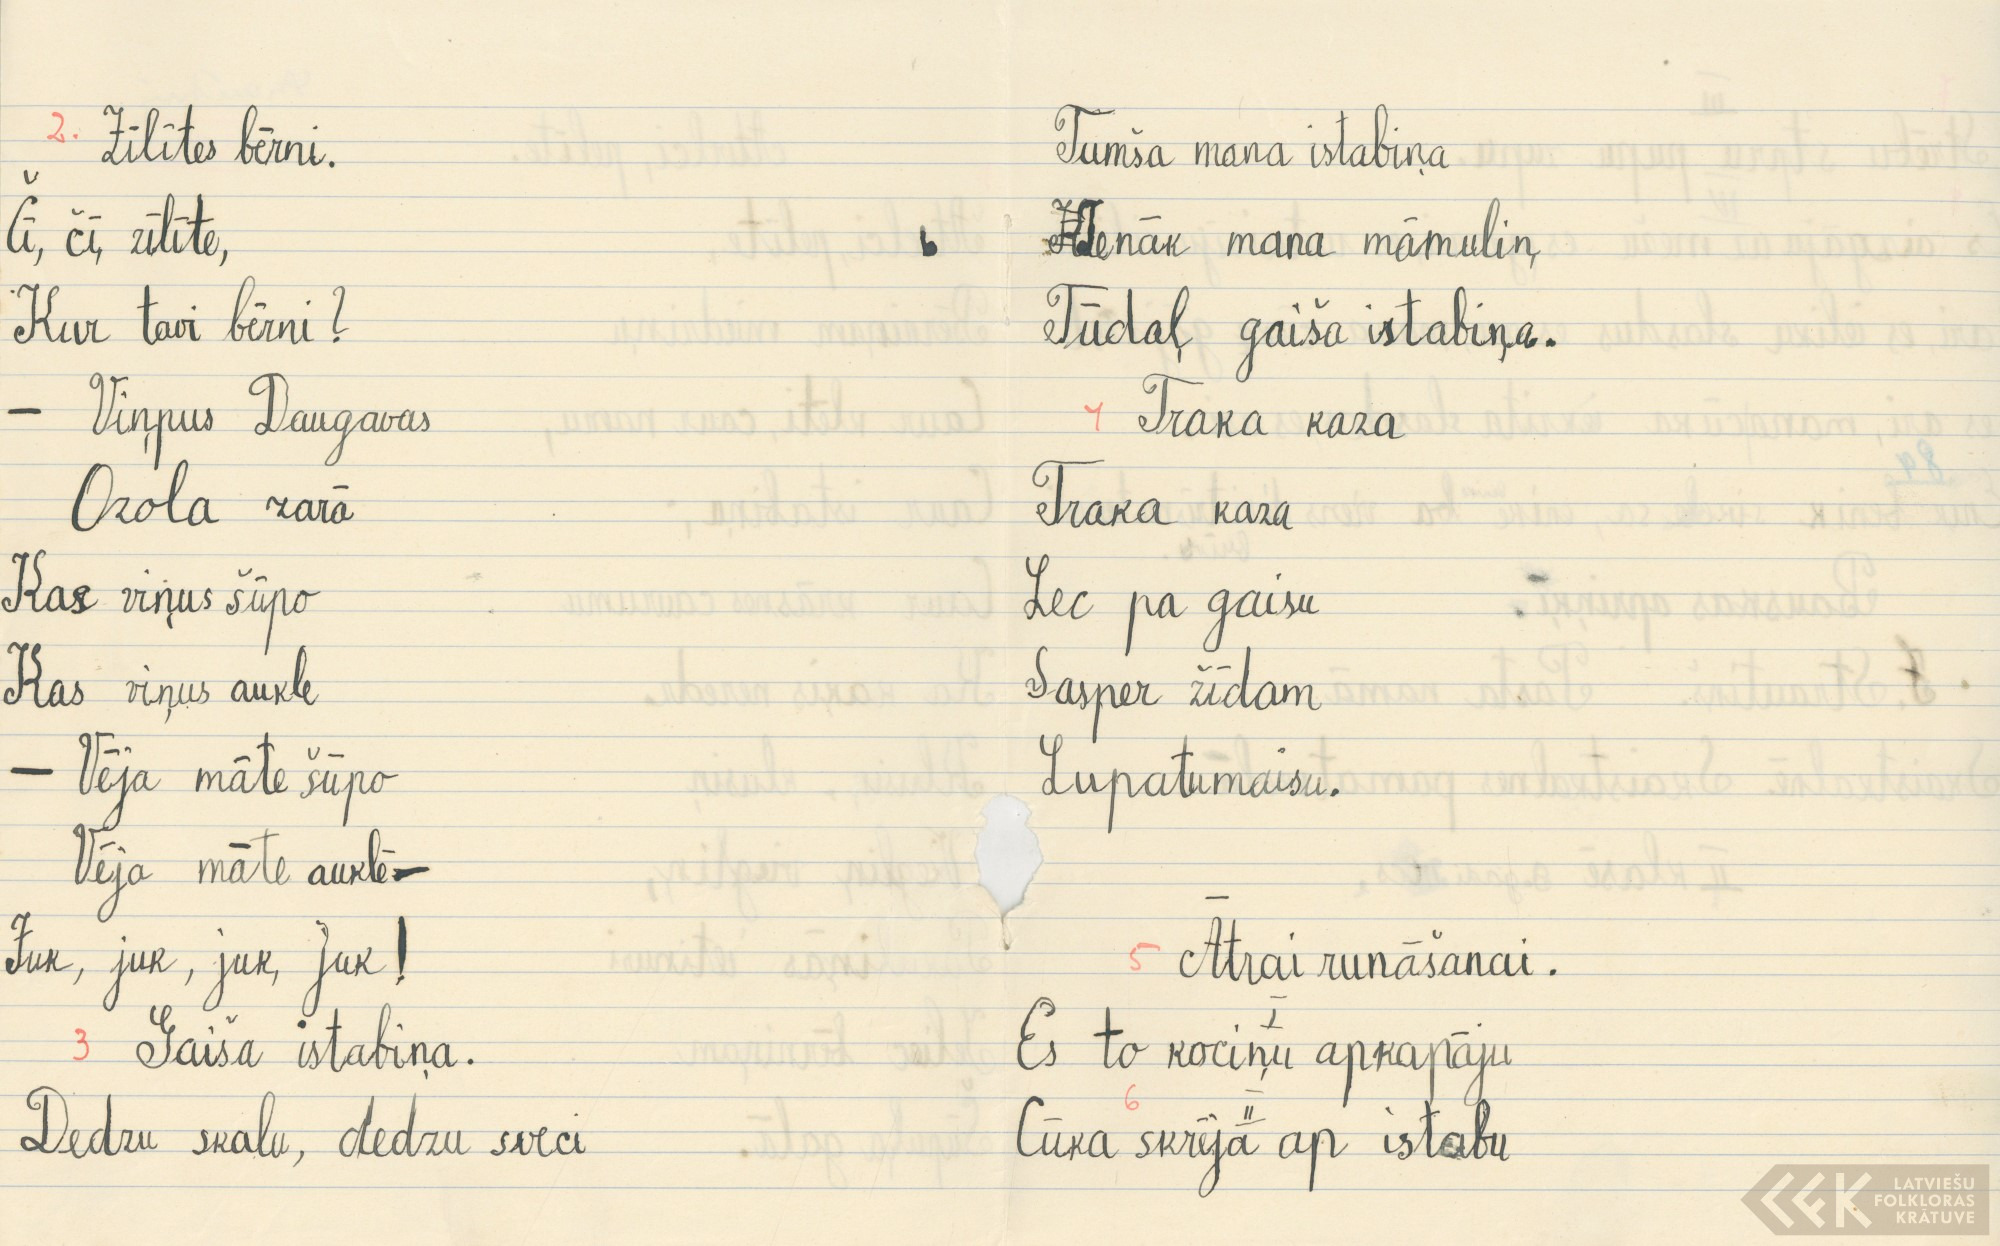 2. Zīlītes bērni.
Čī, čī, zīlīte,
Kur tavi bērni?
— Viņpus Daugavas
Ozola zarā
Kas viņus šūpo
Kas viņus aukle
— Vēja māte šūpo
Vēja māte auklē—
Juk, juk, juk, juk!
3 Gaiša istabiņa.
Dedzu skalu, dedzu sveci
Tumša mana istabiņa
Ienāk mana māmuliņ,
Tūdaļ gaiša istabiņa.
4 Traka kaza
Traka kaza
Lec pa gaisu
Sasper žīdam
Lupatumaisu.
5 Ātrai runāšanai.
I
Es to kociņu apkapāju
6 II
Cūka skrēja ap istabu
LATVIEŠU
FOLKLORAS
KRĀTUVE